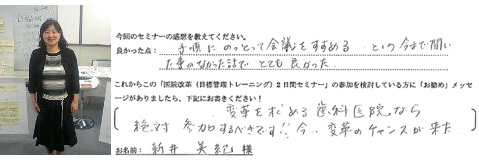 今回のセミナーの感想を教えてください。
良かった点： 手順にのっとって会議をすすめる という今まで聞い
た事のなかった話で とても良かった
これからこの「医院改革（目標管理トレーニング）２日間セミナー」の参加を検討している方に「お勧め」メッセ
ージがありましたら、下記にお書きください！
変革を求める歯科医院なら
絶対 参加するべきです！！今、変革のチャンスが来た
お名前： 新井 美紀 様